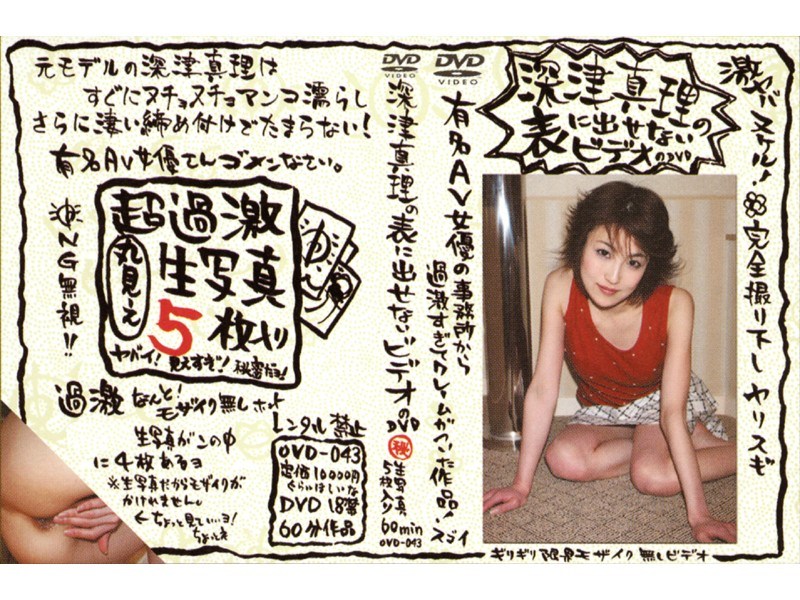 元モデルの深津真理は
すぐにヌチョヌチョマンコ濡らし
さらに凄い締め付けでたまらない!
有名AV女優でんゴメンなてい。
超過激
丸見え
生写真
5枚入り
ヤバイ!見えすぎ!秘密だョ!
㊙NG無視!!
過激なんと!モザイク無しホット
生写真がこの中
に4枚あるヨ
※生写真だからモザイクが
かけれません。
←ちょっと見てぃいヨ!
ちょっとネ
レンタル禁止
OVD-043
定価10000円
ぐらいはいいな
DVD 18禁
60分作品
DVD
VIDEO
深津真理の表に出せないビデオのDVD
㊙
生写真
5枚入り
DVD
VIDEO
有名AV女優の事務所から
過激すぎてクレームがついた作品!スゴイ
60min
OVD-043
深津真理の
表に出せない
ビデオのDVD
激ヤバスケル!完全撮り下しヤリスギ
ギリギリ限界モザイク無しビデオ